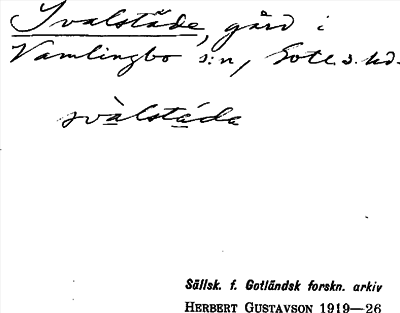 Svalstäde, gård i
Vamlingbo s:n, Gotl. s. hd.
svàlstáde
Sällsk. f. Gotländsk forskn. arkiv
HERBERT GUSTAVSON 1919—26